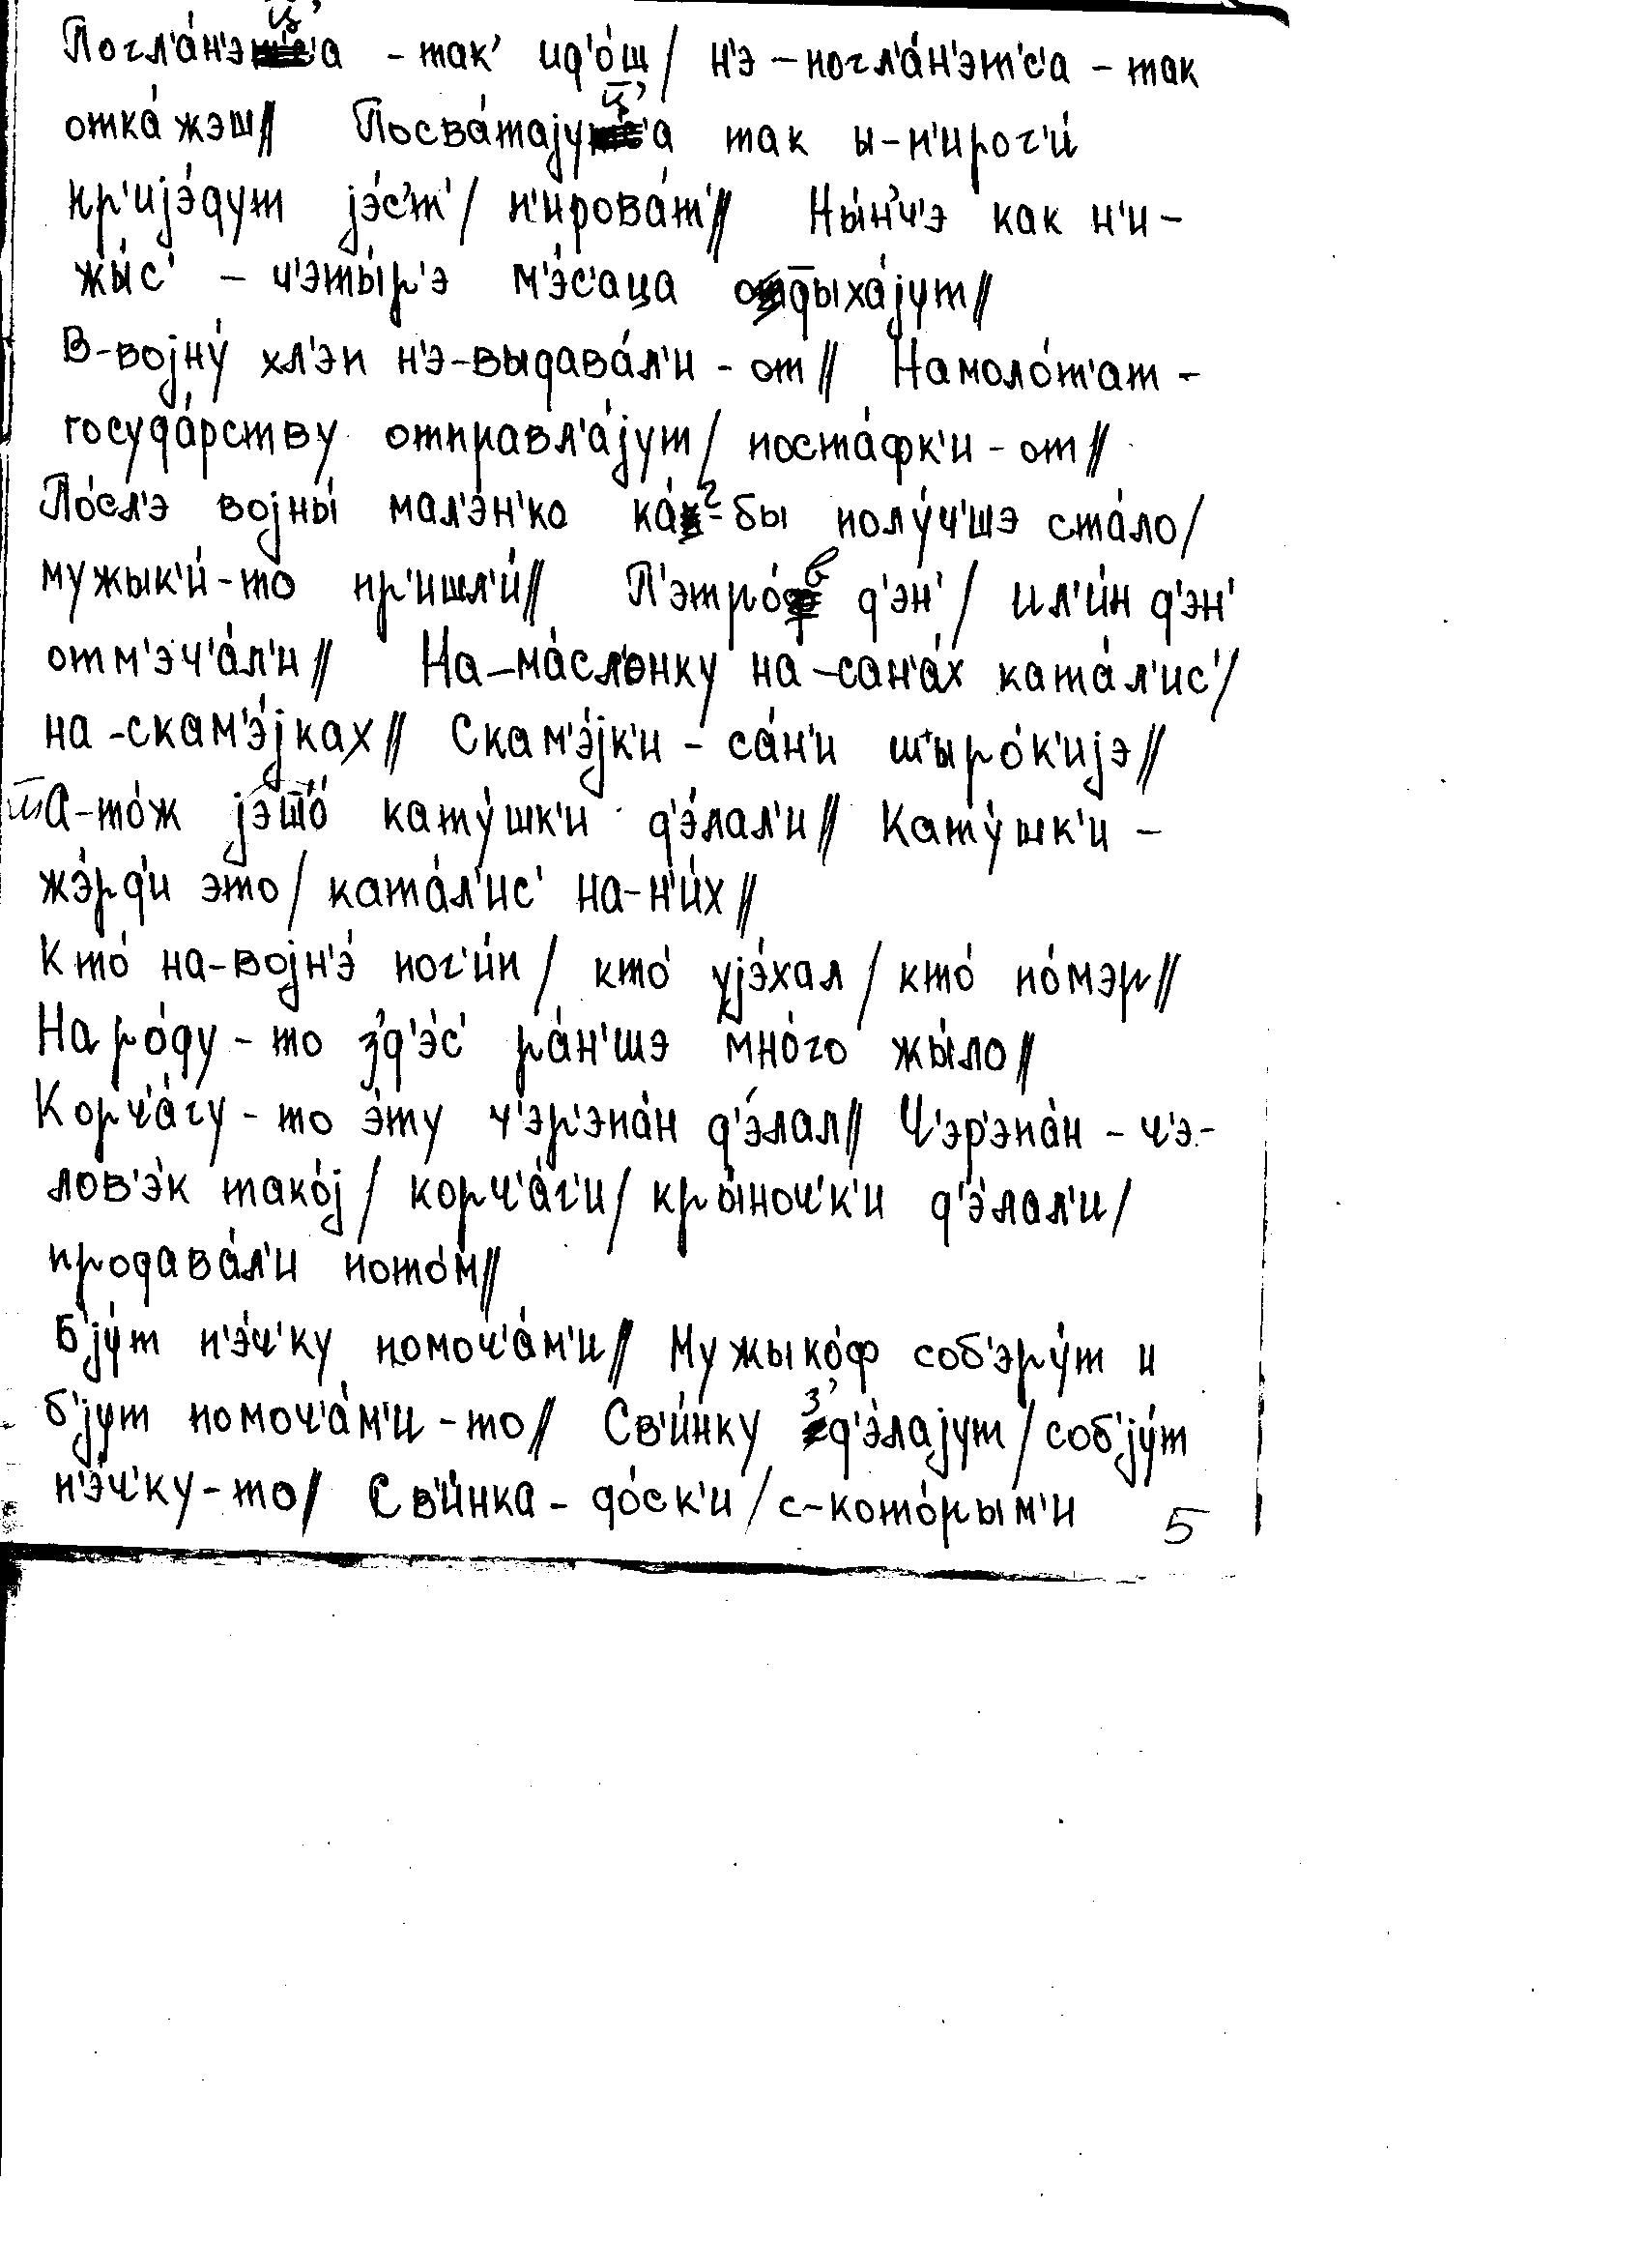 Погл'а́н'эц̄'а - так' ид'о́ш / н'э - погл'а́н'эт'с'а - так
отка́жэш // Посва́тајуц̄'а так ы-п'ирог'и́
пр'ијэ́дут јэ́с'т' / п'ирова́т' // Ны́н'ч'э как н'и-
жы́с' - ч'эты́р'э м'э́с'аца од̄ыха́јут //
В-војну́ хл'эп н'э-выдава́л'и - от // Намоло́т'ат -
госуда́рству отправл'а́јут / поста́фк'и - от //
По́сл'э војны́ мал'э́н'ко ка́г-бы полу́ч'шэ ста́ло /
мужык'и́-то пр'ишл'и́ // П'этро́в д'эн' / ил'и́н д'эн'
отм'эч'а́л'и // На-ма́сл'онку на-сан'а́х ката́л'ис' /
на-скам'э́јках // Скам'э́јк'и - са́н'и шыро́к'ијэ //
А-то́ж јэш̄о́ кату́шк'и д'э́лал'и // Кату́шк'и -
жэ́рд'и это / ката́л'ис' на-н'и́х //
Кто́ на-војн'э́ пог'и́п / кто́ ујэ́хал / кто́ по́мэр //
Наро́ду - то з'д'э́с' ра́н'шэ мно́го жы́ло //
Корч'а́гу - то э́ту ч'эр'эпа́н д'э́лал // Ч'эр'эпа́н - ч'э-
лов'э́к тако́ј / корч'а́г'и / кры́ноч'к'и д'э́лал'и /
продава́л'и пото́м //
Б'ју́т п'э́ч'ку помоч'а́м'и // Мужыко́ф соб'эру́т и
б'јут помоч'а́м'и - то // Св'и́нку з'д'э́лајут / соб'ју́т
п'э́ч'ку - то / Св'и́нка - до́ск'и / с-кото́рым'и
5